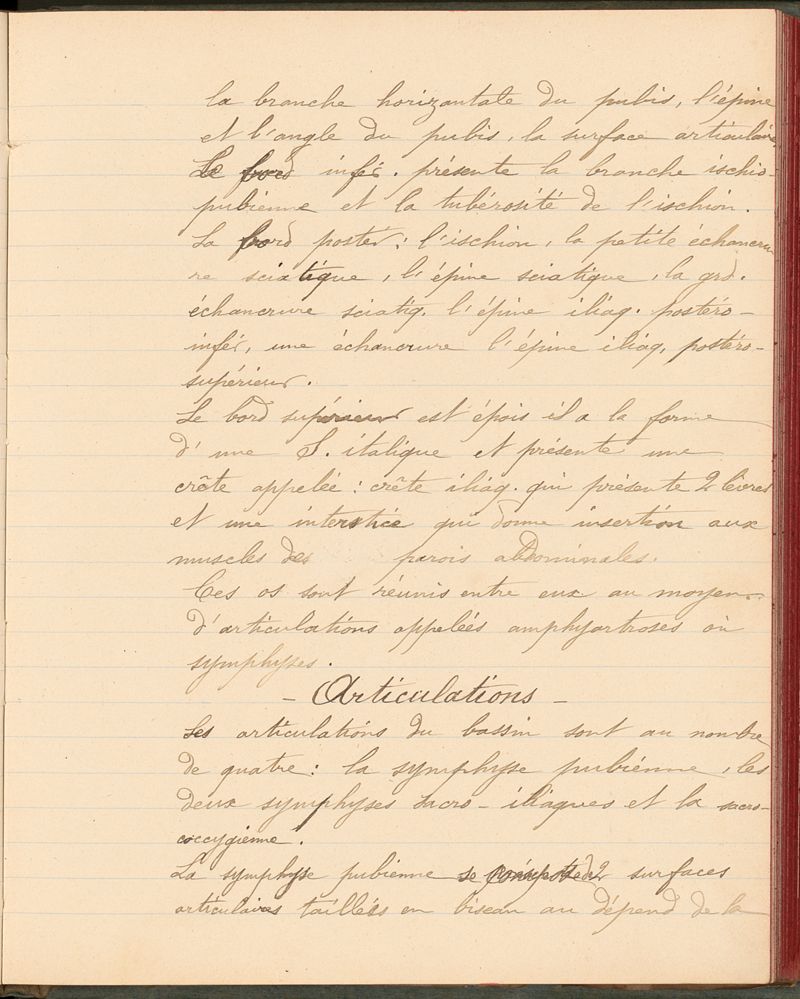 la branche horizontale du pubis, l'épine
et l'angle du pubis, la surface articulaire
Le bord infér. présente la branche ischio-
pubienne et la tubérosité de l'ischion.
La bord postér: l'ischion, la petite échancru
re sciatique, l'épine sciatique, la grd.
échancrure sciatiq. l'épine iliaq. postéro-
infér, une échancrure l'épine iliaq, postéro-
supérieur.
Le bord supérieur est épois il a la forme
d'une S. italique et présente une
crête appelée: crête iliaq. qui présente 2 lèvres
et une interstice qui donne insertion aux
muscles des parois abdominales.
Ces os sont réunis entre eux au moyen
d'articulations appelées amphyartroses où
symphyses.
- Articulations -
Les articulations du bassin sont au nombre
de quatre: la symphyse pubienne, les
deux symphyses sacro-iliaques et la sacro-
coccygienne.
La symphyse pubienne se compose d 2 surfaces
articulaires taillées en biseau au dépend de la